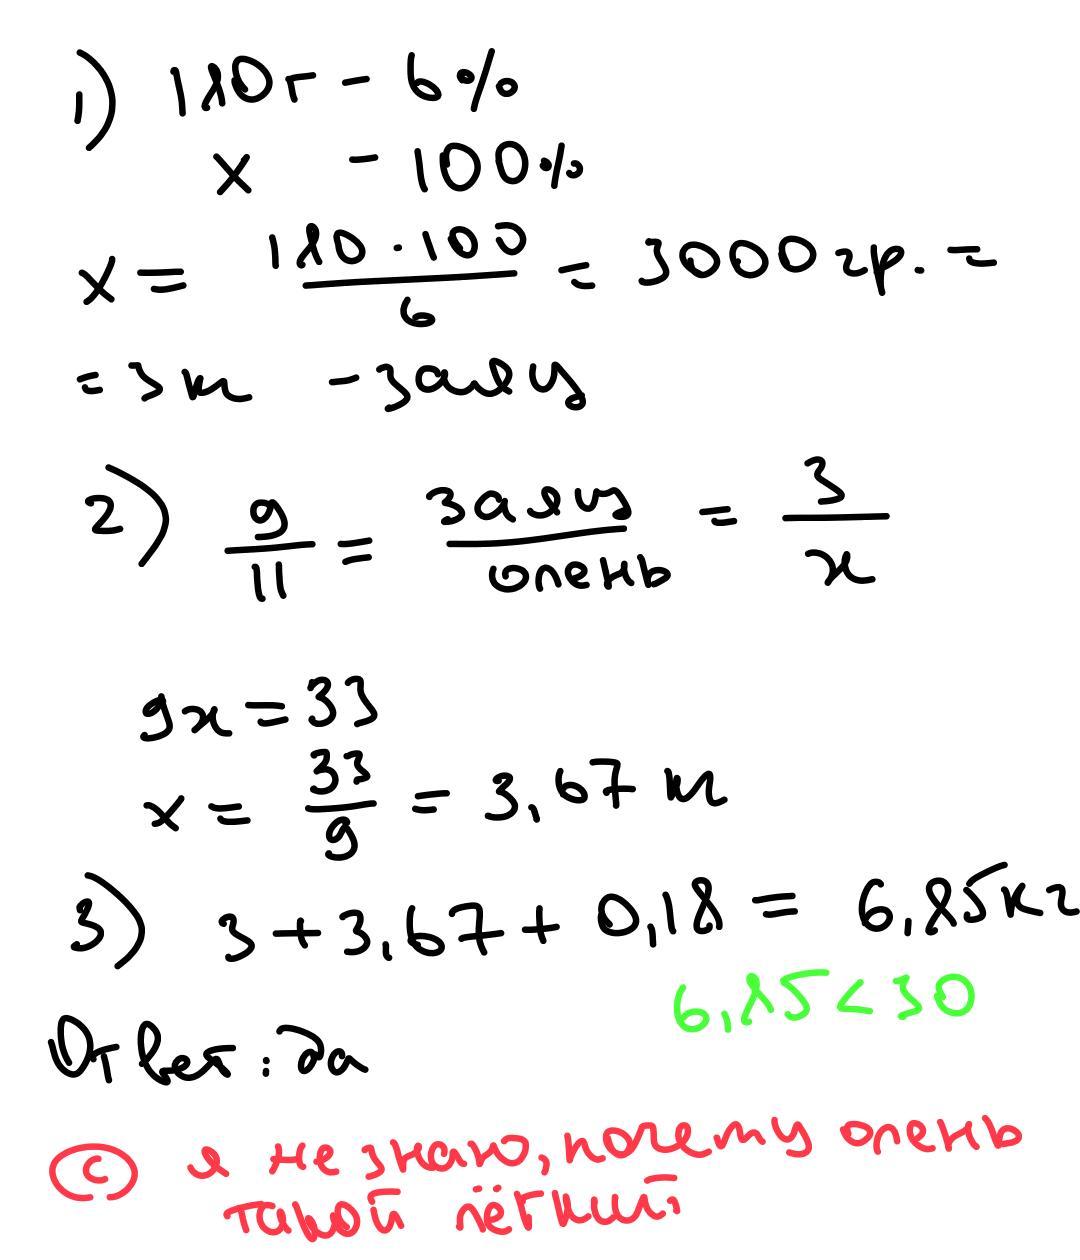 1) 180г - 6%
x - 100%
x = 180 · 100 / 6 = 3000 гр. =
= 3 кг - заяц
2) 9/11 = заяц/олень = 3/x
9x = 33
x = 33/9 = 3,67 кг
3) 3 + 3,67 + 0,18 = 6,85 кг
6,85 < 30
Ответ: да
© я не знаю, почему олень
такой лёгкий